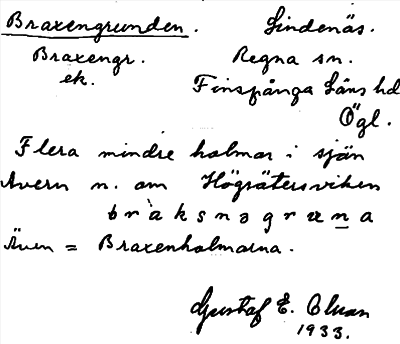 Braxengrunden. Lindenäs.
Braxengr. Regna sn.
ek. Finspånga Läns hd
Ögl.
Flera mindre holmar i sjön
Avern n. om Högrätersviken
bràksnəgrɯna
Även = Braxenholmarna.
Gustaf E.
1933.